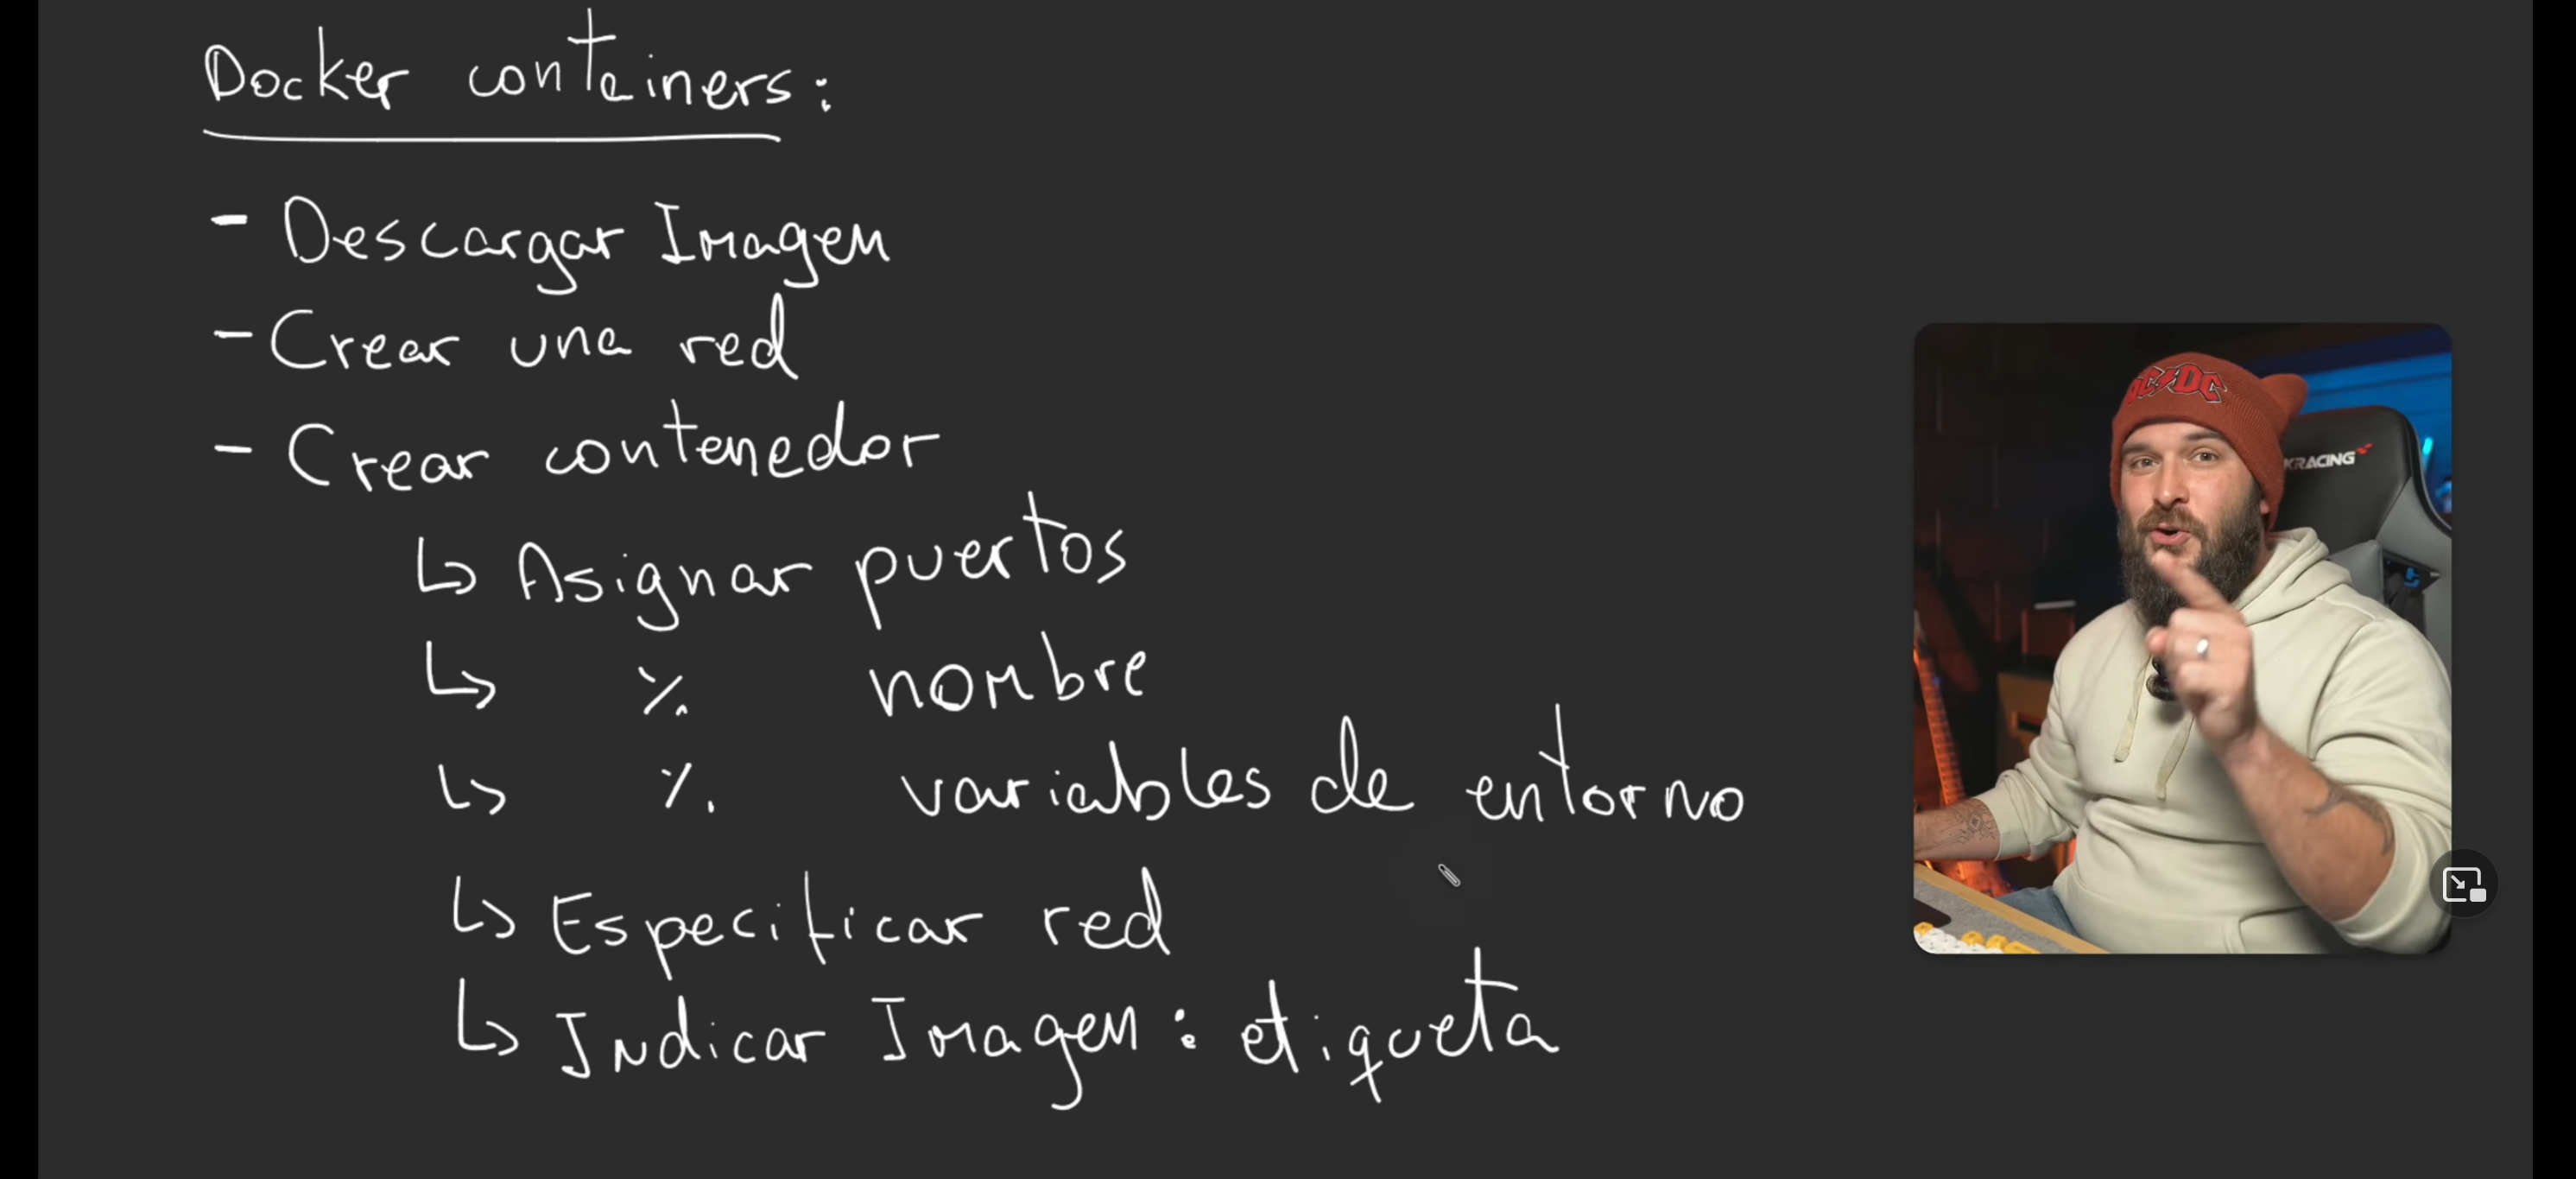 Docker containers:
- Descargar Imagen
- Crear una red
- Crear contenedor
↳ Asignar puertos
↳ ٪ nombre
↳ ٪ variables de entorno
↳ Especificar red
↳ Indicar Imagen: etiqueta
AC/DC
KRACING